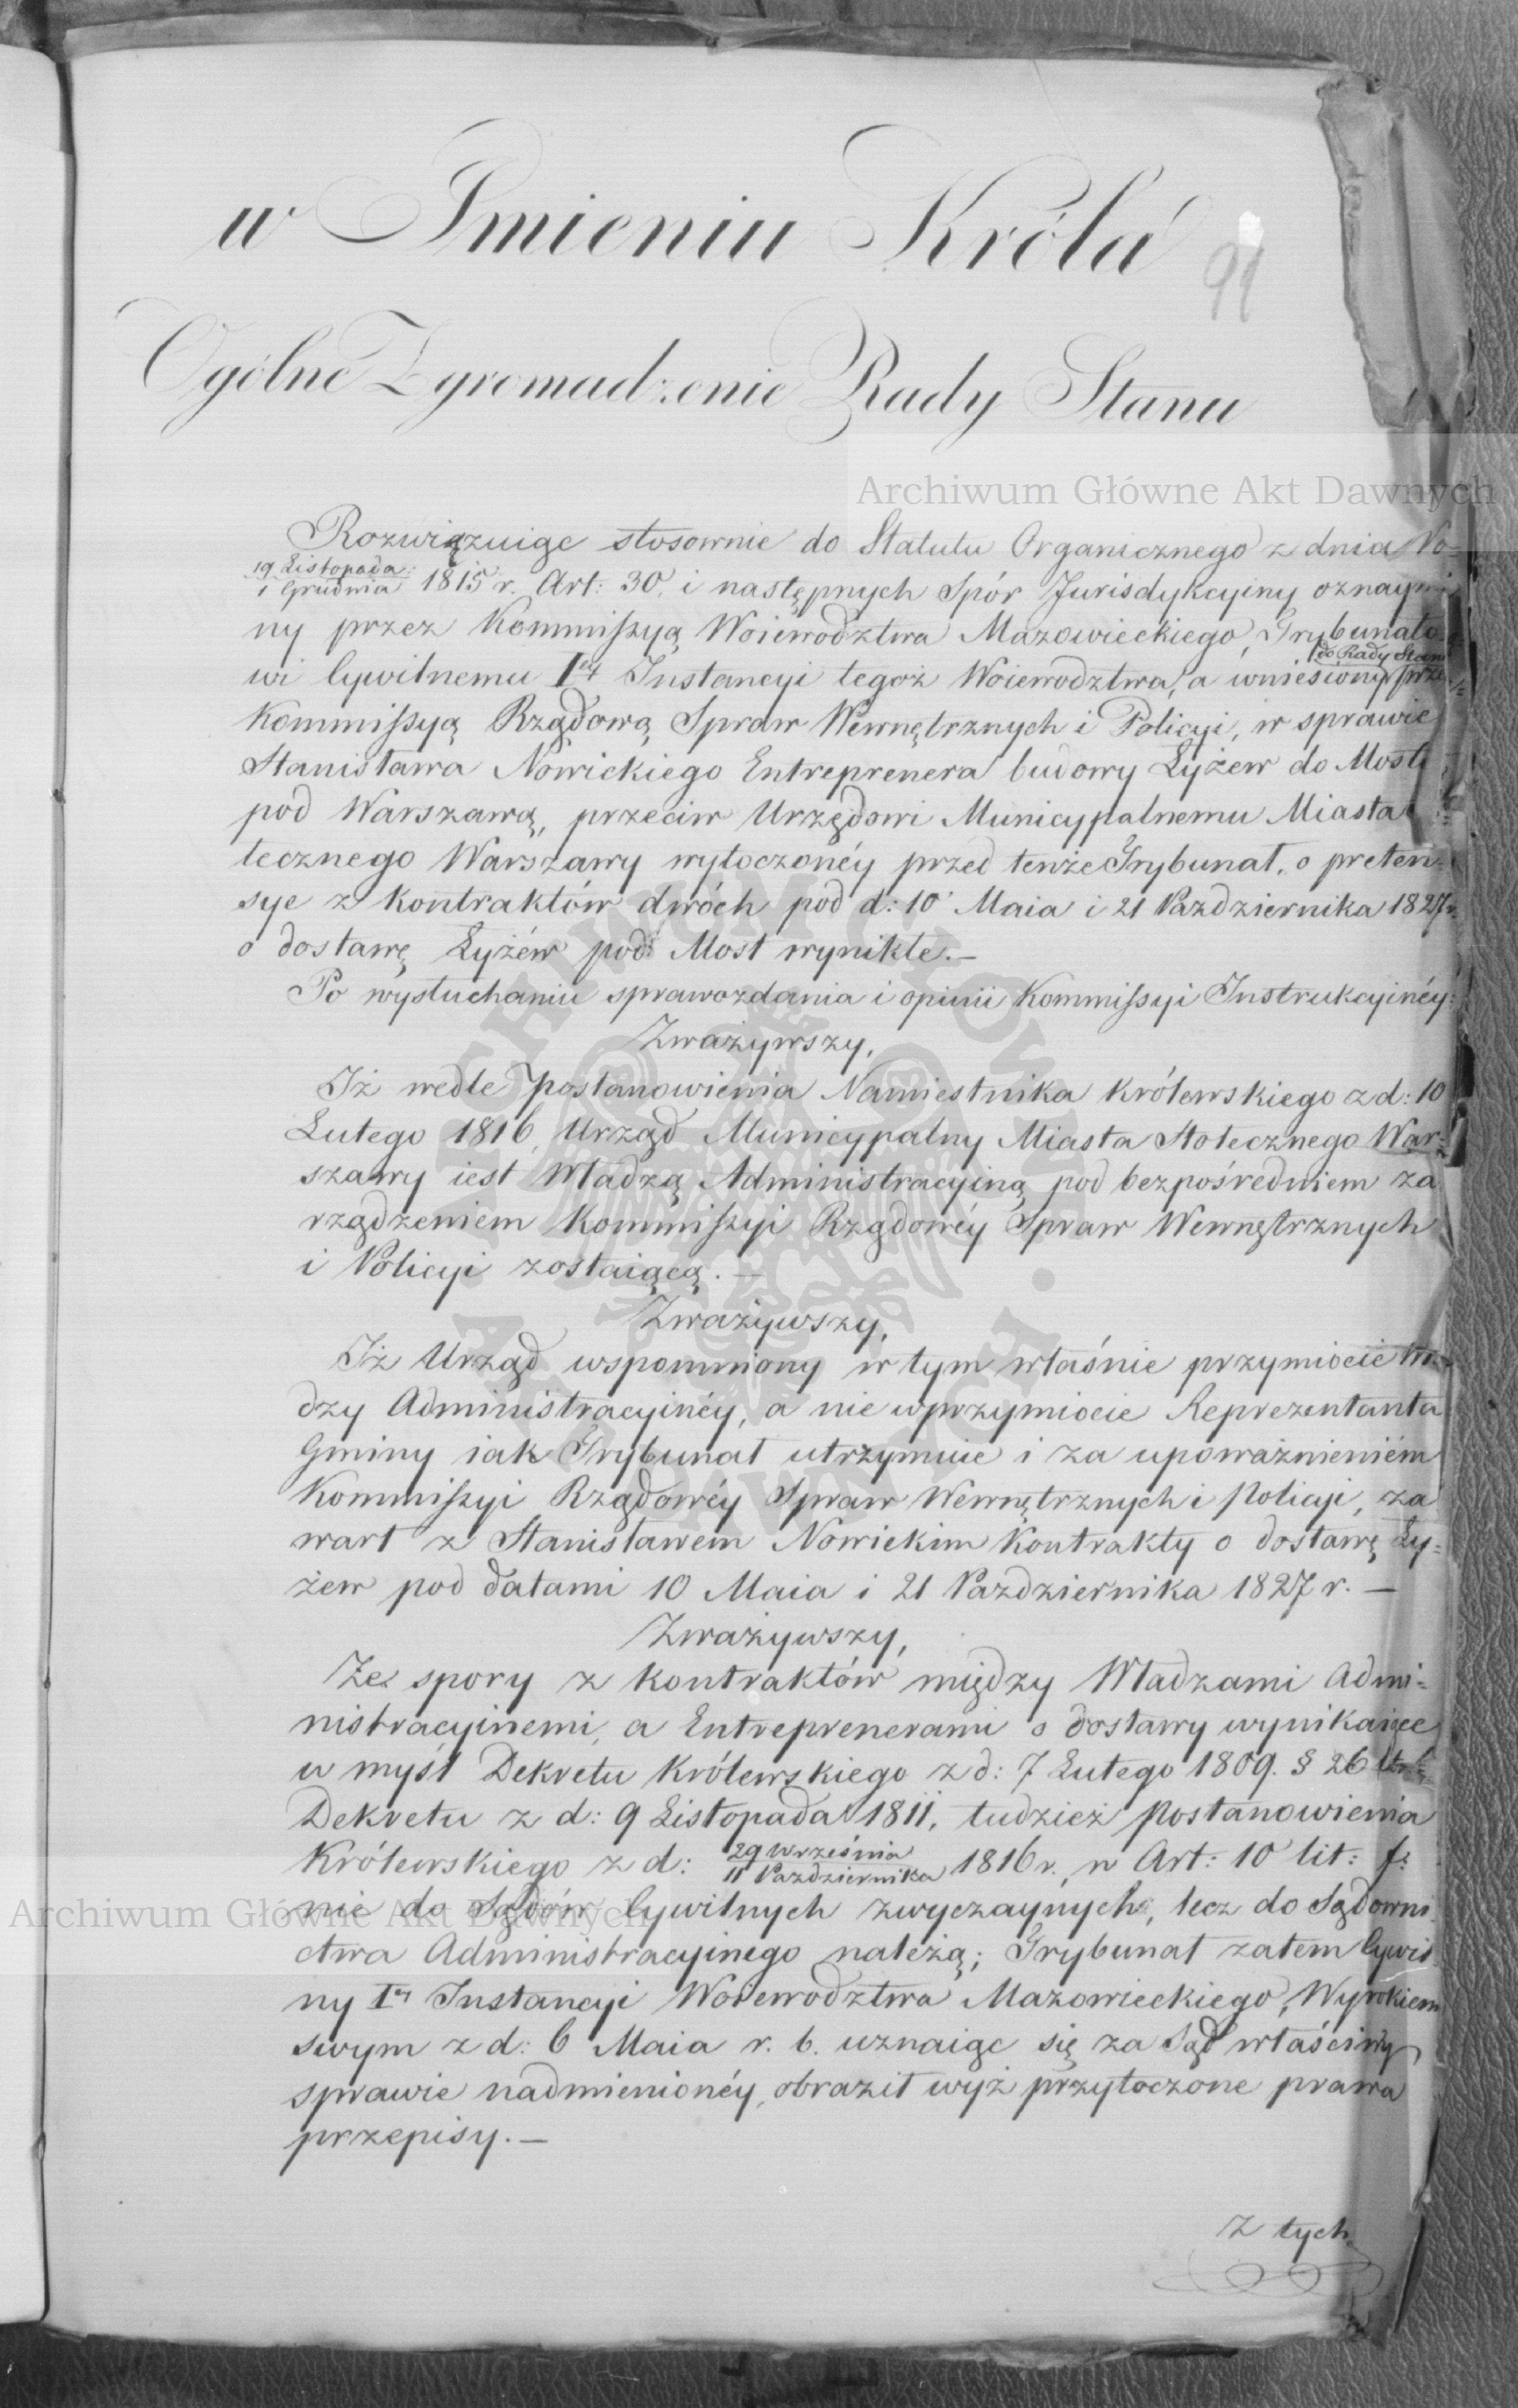 w Imieniu Króla
91
Ogólne Zgromadzenie Rady Stanu
Archiwum Główne Akt Dawnych
Rozwiązuiąc stosownie do Statutu Organicznego z dnia
19 Listopada
1 Grudnia 1815 r. Art: 30. i następnych Spór Jurisdykcyiny oznaymi
ny przez Kommissyą Woiewodztwa Mazowieckiego, Trybunało
do Rady Stanu
wi Cywilnemu Iéy Instancyi tegoż Woiewodztwa, a wniesiony prze
Kommissyą Rządową Spraw Wewnętrznych i Policyi, w sprawie
Stanisława Nowickiego Entreprenera budowy Łyżew do Mostu
pod Warszawą, przeciw Urzędowi Municypalnemu Miasta
łecznego Warszawy wytoczonéy przed tenże Trybunał, o preten-
sye z kontraktów dwóch pod d: 10 Maia i 21 Października 1827 r.
o dostawę Łyżew pod Most wynikłe.—
Po wysłuchaniu sprawozdania i opinii Kommissyi Instrukcyinéy:
Zważywszy,
Iż wedle Postanowienia Namiestnika Królewskiego z d: 10
Lutego 1816, Urząd Municypalny Miasta Stołecznego War=
szawy iest Władzą Administracyiną pod bezpośredniem za
rządzeniem Kommissyi Rządowéy Spraw Wewnętrznych
i Policyi zostaiącą.—
Zważywszy,
Iż Urząd wspomniony w tym właśnie przymiocie Wła-
dzy Administracyinéy, a nie w przymiocie Reprezentanta
Gminy iak Trybunał utrzymuie i za upoważnieniém
Kommissyi Rządowéy Spraw Wewnętrznych i Policyi, za
warł z Stanisławem Nowickim Kontrakty o dostawę Ły=
żew pod datami 10 Maia i 21 Października 1827 r.—
Zważywszy,
Że spory z kontraktów między Władzami Admi=
nistracyinemi, a Entreprenerami o dostawy wynikaiące
w myśl Dekretu Królewskiego z d: 7 Lutego 1809. § 26
Dekretu z d: 9 Listopada 1811, tudzież Postanowienia
Królewskiego z d: 29 Września
11 Października 1816 r., w Art: 10 lit: f:
nie do Sądów Cywilnych zwyczaynych, lecz do Sądowni
Archiwum Główne Akt Dawnych
ctwa Administracyinego należą; Trybunał zatem Cywil
ny Iéy Instancyi Woiewodztwa Mazowieckiego, Wyrokiem
swym z d: 6 Maia r. b. uznaiąc się za Sąd właściwy
sprawie nadmienionéy, obraził wyż przytoczone prawa
przepisy.—
Z tych
ARCHIWUM GŁÓWNE AKT DAWNYCH